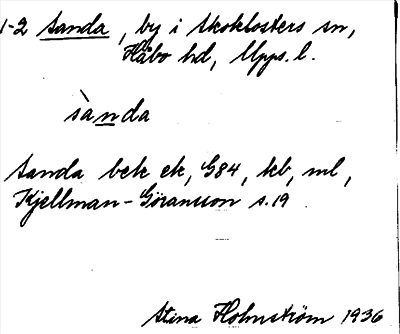 1-2 Sanda, by i Skoklosters sn,
Håbo hd, Upps. l.
sànda
Sanda bek ek, G84, kb, ml,
Kjellman-Göransson s. 19
Stina Holmström 1936